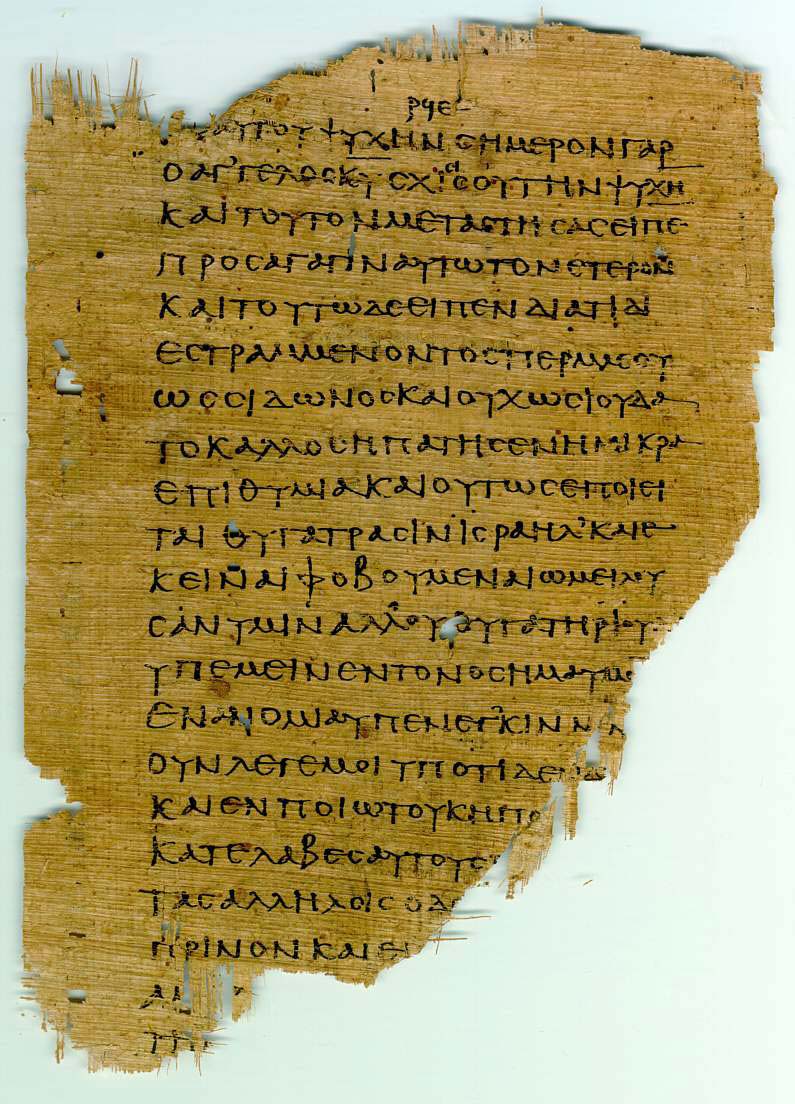 ρϥε
ϹΑΥΤΟΥ ΨΥΧΗΝ ϹΗΜΕΡΟΝ ΓΑΡ
Ο ΑΓ᾽ΓΕΛΟϹ ΚΥ ϹΧΙϹΕΙ ϹΟΥ ΤΗΝ ΨΥΧΗ
ΚΑΙ ΤΟΥΤΟΝ ΜΕΤΑϹΤΗϹΑϹ ΕΙΠΕ
ΠΡΟϹΑΓΑΓΙΝ ΑΥΤΩ ΤΟΝ ΕΤΕΡΟΝ
ΚΑΙ ΤΟΥΤΩ ΔΕ ΕΙΠΕΝ ΔΙΑ ΤΙ ΔΙ
ΕϹΤΡΑΜΜΕΝΟΝ ΤΟ ϹΠΕΡΜΑ ϹΟΥ
ΩϹ ϹΙΔΩΝΟϹ ΚΑΙ ΟΥΧ ΩϹ ΙΟΥΔΑ
ΤΟ ΚΑΛΛΟϹ ϹΕ ΗΠΑΤΗϹΕΝ Η ΜΙΚΡΑ
ΕΠΙΘΥΜΙΑ ΚΑΙ ΟΥΤΩϹ ΕΠΟΙΕΙ
ΤΑΙ ΘΥΓΑΤΡΑϹΙΝ ΙϹΡΑΗΛ᾽ ΚΑΙ Ε
ΚΕΙΝΑΙ ΦΟΒΟΥΜΕΝΑΙ ΩΜΕΙΛΟΥ
ϹΑΝ ΥΜΙΝ ΑΛΛ ΟΥ ΘΥΓΑΤΗΡ ΙΟΥ
ΥΠΕΜΕΙΝΕΝ ΤΟ ΝΟϹΗΜΑ ΥΜΩ
ΕΝ ΑΝΟΜΙΑ ΥΠΕΝΕΓ᾽ΚΙΝ ΝΥΝ
ΟΥΝ ΛΕΓΕ ΜΟΙ ΥΠΟ ΤΙ ΔΕΝ
ΚΑΙ ΕΝ ΠΟΙΩ ΤΟΥ ΚΗΠΟ
ΚΑΤΕΛΑΒΕϹ ΑΥΤΟΥϹ
ΤΑϹ ΑΛΛΗΛΟΙϹ Ο ΔΕ
ΠΡΙΝΟΝ ΚΑΙ ΕΙ
ΔΑ
ΤΗΝ